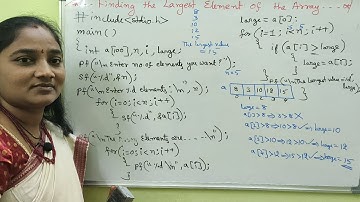 Finding the Largest Element of the Array
#include<stdio.h>
main()
{ int a[100], n, i, large;
pf("\n Enter no of elements you want :");
sf("%d", &n);
pf("\n Enter %d elements: \n", n);
for(i=0; i<n; i++)
{ sf("%d", &a[i]);
}
elements are - - - \n");
for(i=0; i<n; i++)
{ pf("%d \n", a[i]);
}
8
3
10
12
15
The largest value
n=5
large = a[0];
for(i=1; i<n; i++)
{ if (a[i]>large)
large = a[i];
}
pf("\n The largest value=%d",
large);
a 8 3 10 12 15
0 1 2 3 4
large = 8
a[1]>8 ⇒ 3>8 X
a[2]>8 ⇒ 10>8 ✓ ⇒ large=10
a[3]>10 ⇒ 12>10 ✓ ⇒ large=12
a[4]>12 ⇒ 15>12 ✓ ⇒ large=15